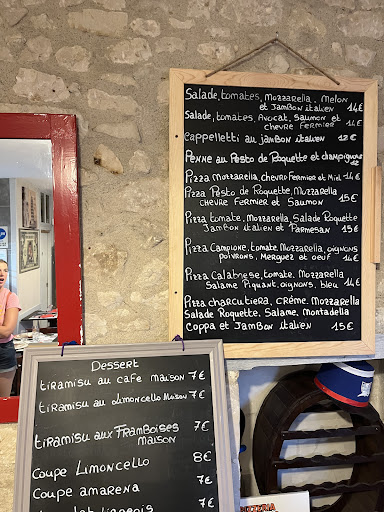 Salade, tomates, Mozzarella, Melon
et Jambon italien 14€
Salade, tomates, Avocat, Saumon et
chevre Fermier 14€
Cappelletti au jambon italien 12€
Penne au Pesto de Roquette et champignons
12€
Pizza Mozzarella, chevre Fermier et Miel 14€
Pizza Pesto de Roquette, Mozzarella
chevre Fermier et Saumon 15€
Pizza tomate, Mozzarella, Salade Roquette
Jambon italien et Parmesan 15€
Pizza Campione, tomate, Mozzarella, oignons
poivrons, Merguez et oeuf 14€
Pizza Calabrese, tomate, Mozzarella
Salame Piquant, oignons, bleu 14€
Pizza charcutiera, crème, Mozzarella
Salade Roquette, Salame, Mortadella
Coppa et Jambon italien 15€
Dessert
tiramisu au cafe maison 7€
tiramisu au Limoncello Maison 7€
tiramisu aux Framboises 7€
maison
Coupe Limoncello 8€
Coupe amarena 7€
7€